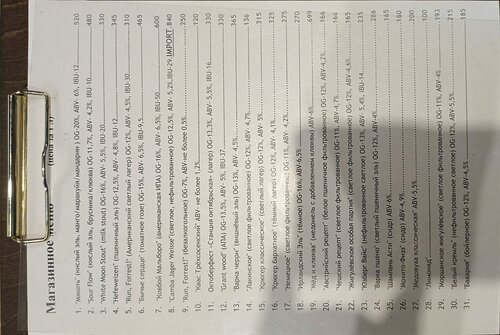 Магазинное меню (цена за 1 л)
1. "Мякоть" (кислый эль, манго/маракуйя /мандарин ) OG-20%, ABV- 6%, IBU-12 520
2. "Sour Flow" (кислый эль, брусника/клюква) OG-11,7%, ABV- 4,2%, IBU-10 480
3. "White Moon Stout" (milk stout) OG-16%, ABV- 5,5%, IBU-20 330
4. "Hefeweizen" (пшеничный эль) OG-12,5%, ABV- 4,8%, IBU-12 345
5. "Run, Forrest!" (Американский светлый лагер) OG-12%, ABV- 4,5%, IBU-30 310
6. "Бычье сердце" (томатное гозе) OG-15%, ABV- 6,5%, IBU-9,5 465
7. "Ковбой Мальборо" (американская ИПА) OG-16%, ABV- 6,5%, IBU-50 600
8. "Camba Jager Weisse" (светлое, нефильтрованное) OG-12,5%, ABV- 5,2%,IBU-29.IMPORT 840
9. "Run, Forrest!" (безалкогольное) OG-7%, ABV-не более 0,5% 250
10. "Квас Трёхсосенский" ABV- не более 1,2% 120
11. Октоберфест-Станция (октябрьский лагер) OG-13,3%, ABV- 5,5%, IBU-16 330
12. "Grant Wood" (APA) OG-13,5%, ABV- 5,5%, IBU-33
13. "Варка черри" (вишнёвый эль) OG-13%, ABV- 4,5% 365
14. "Лаинское" (светлое фильтрованное) OG-12%, ABV- 4,7% 136
15. "Крюгер классическое" (светлый лагер) OG-12%, ABV- 5% 315
16. "Крюгер бархатное" (тёмный лагер) OG-12%, ABV- 4,1% 325
17. "Немецкое" (светлое фильтрованное) OG-11%, ABV- 4,2% 175
18. "Ирландский Эль" (тёмное) OG-16%, ABV-6,5% 270
19. "Мёд и клюква" (медкомль с добавлением клюквы) ABV-6% 699
20. "Австрийский рецепт" (белое пшеничное фильтрованное) OG-12%, ABV-4,2% 166
21. "Чешский рецепт" (светлое фильтрованное) OG-11%, ABV-4,7% 166
22. "Жигулевское особая партия" (светлое фильтрованное) OG-12%, ABV-4,6% 165
23. "Юзберг Вайс" (пшеничное нефильтрованное) OG-13%, ABV- 5,4%, IBU-14 235
24. "Бланшвайс" светлый пшеничный эль OG-12%, ABV-4% 286
25. "Шампань Асти" (сидр) ABV-6% 165
26. "Мохито Фэйд" (сидр) ABV-4,9% 180
27. "Медовуха классическая" ABV-5,5% 200
28. "Лимонад" 100
29. "Моршанское жигулёвское" (светлое фильтрованное) OG-11%, ABV-4% 193
30. "Белый кремль" (нефильтрованное светлое) OG-12%, ABV-5,5% 215
31. "Бавария" (бойлерное) OG-12%, ABV-4,5% 185